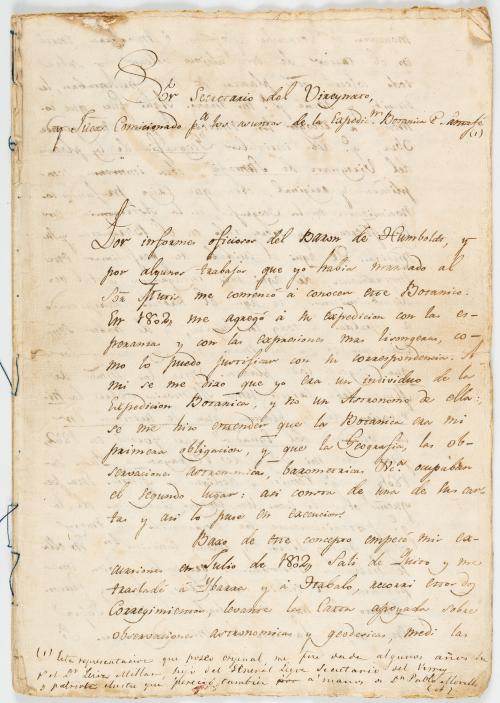 Sr Secretario del Vireynato,
y Juez Comicionado pa los asuntos de la Expedicn Botanica de Santafé
(1)
Por informes oficiosos del Baron de Humboldt, y
por algunos trabajos que yo habia mandado al
Sor Mutis, me comenzó á conocer este Botanico.
En 1802, me agregó á su expedicion con las es-
peranzas y con las expreciones mas lisongeras, co-
mo lo puedo justificar con su correspondencia. A
mi se me dixo que yo era un individuo de la
Expedicion Botanica, y no un Astronomo de ella:
se me hizo entender que la Botanica era mi
primera obligacion, y que la Geografia, las ob-
servaciones astronomicas, barometricas &a. ocupaban
el segundo lugar: asi consta de una de sus car-
tas y asi lo puse en execucion.
Baxo de este concepto empecé mis ex-
cursiones en Julio de 1802, Sali de Quito y me
trasladé á Ybarra y á Otabalo, recorri esos dos
Corregimientos, levanté la Carta apoyada sobre
observaciones astronomicas y geodesicas, medi las
(1) Esta representacion que poseo original, me fue dada algunos años ha
pr el Dr Leiva Millan, hijo del General Leiva Secretario del Virrey
y patriota ilustre que pereció tambien á manos de Dn Pablo Morillo